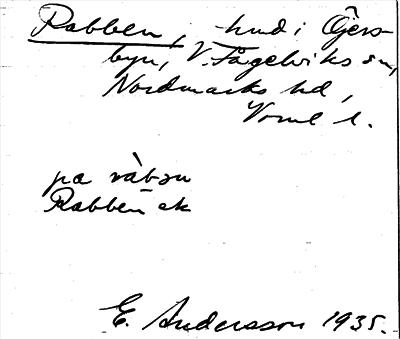 Rabben, hmd i Öjers-
byn, V. Fågelviks sn,
Nordmarks hd,
Vrml l.
pa ràbəṇ
Rabben ek
E. Andersson 1935.